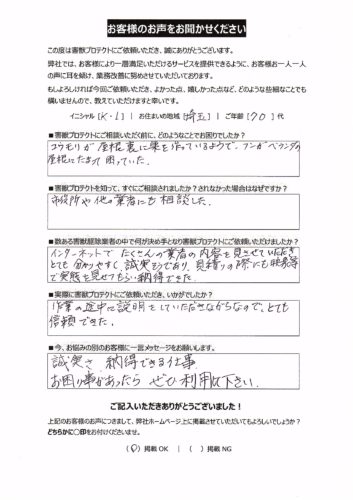 お客様のお声をお聞かせください
この度は害獣プロテクトにご依頼いただき、誠にありがとうございます。
弊社では、お客様により一層満足いただけるサービスを提供できるように、お客様お一人お一人
の声に耳を傾け、業務改善に努めさせていただいております。
もしよろしければ今回ご依頼いただき、よかった点、嬉しかった点など、どのような些細なことでも
構いませんので、教えていただけますと幸いです。
イニシャル [ K・I ] | お住まいの地域 [ 埼玉 ] | ご年齢 [ 70 ] 代
■害獣プロテクトにご相談いただく前に、どのようなことでお困りでしたか？
コウモリが屋根裏に巣を作っているようで、フンがベランダの
屋根にたまって困っていた。
■害獣プロテクトを知って、すぐにご相談されましたか？されなかった場合はなぜですか？
市役所や他の業者にも相談した。
■数ある害獣駆除業者の中で何が決め手となり害獣プロテクトにご依頼いただけましたか？
インターネットでたくさんの業者の内容を見させていただき
とても分かりやすく、誠実そうであり、見積りの際にも映像等
で実態を見せてもらい納得できた。
■実際に害獣プロテクトにご依頼いただき、いかがでしたか？
作業の途中に説明をしていただきながらなので、とても
信頼できた。
■今、お悩みの別のお客様に一言メッセージをお願いします。
誠実さ、納得できる仕事
お困り事があったら ぜひ利用下さい。
ご記入いただきありがとうございました！
上記のお客様のお声につきまして、弊社ホームページ上に掲載させていただいてもよろしいでしょうか？
どちらかに○印をお付けくださいませ。
(○) 掲載 OK | ( ) 掲載 NG